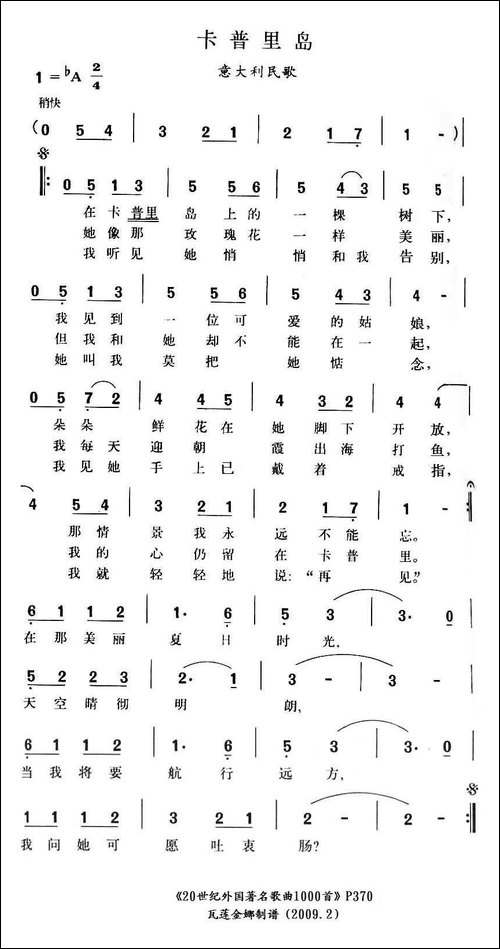 卡普里岛
意大利民歌
1=♭A 2/4
稍快
(0 5 4 | 3 2 1 | 2 1 7 | 1 - )
‖: 0 5 1 3 | 5 5 6 | 5 4 3 | 5 5
在卡普里岛上的一棵树下,
她像那玫瑰花一样美丽,
我听见她悄悄和我告别,
0 5 1 3 | 5 5 6 | 5 4 3 | 4 - |
我见到一位可爱的姑娘,
但我和她却不能在一起,
她叫我莫把她惦念,
0 5 7 2 | 4 4 5 | 4 3 2 | 4 4
朵朵鲜花在她脚下开放,
我每天迎朝霞出海打鱼,
我见她手上已戴着戒指,
4 5 4 | 3 2 1 | 2 1 7 | 1 - :‖
那情景我永远不能忘。
我的心仍留在卡普里。
我就轻轻地说:“再见。”
6 1 1 2 | 1· 6 | 5 3 | 3· 0
在那美丽夏日时光,
5 2 2 3 | 2· 1 | 3 - | 3 - |
天空晴彻明朗,
6 1 1 2 | 1· 6 | 5 3 | 3· 0
当我将要航行远方,
1 1 1 2 | 3 2 1 | 2 - | 2 - :‖
我问她可愿吐衷肠?
《20世纪外国著名歌曲1000首》P370
瓦莲金娜制谱(2009.2)